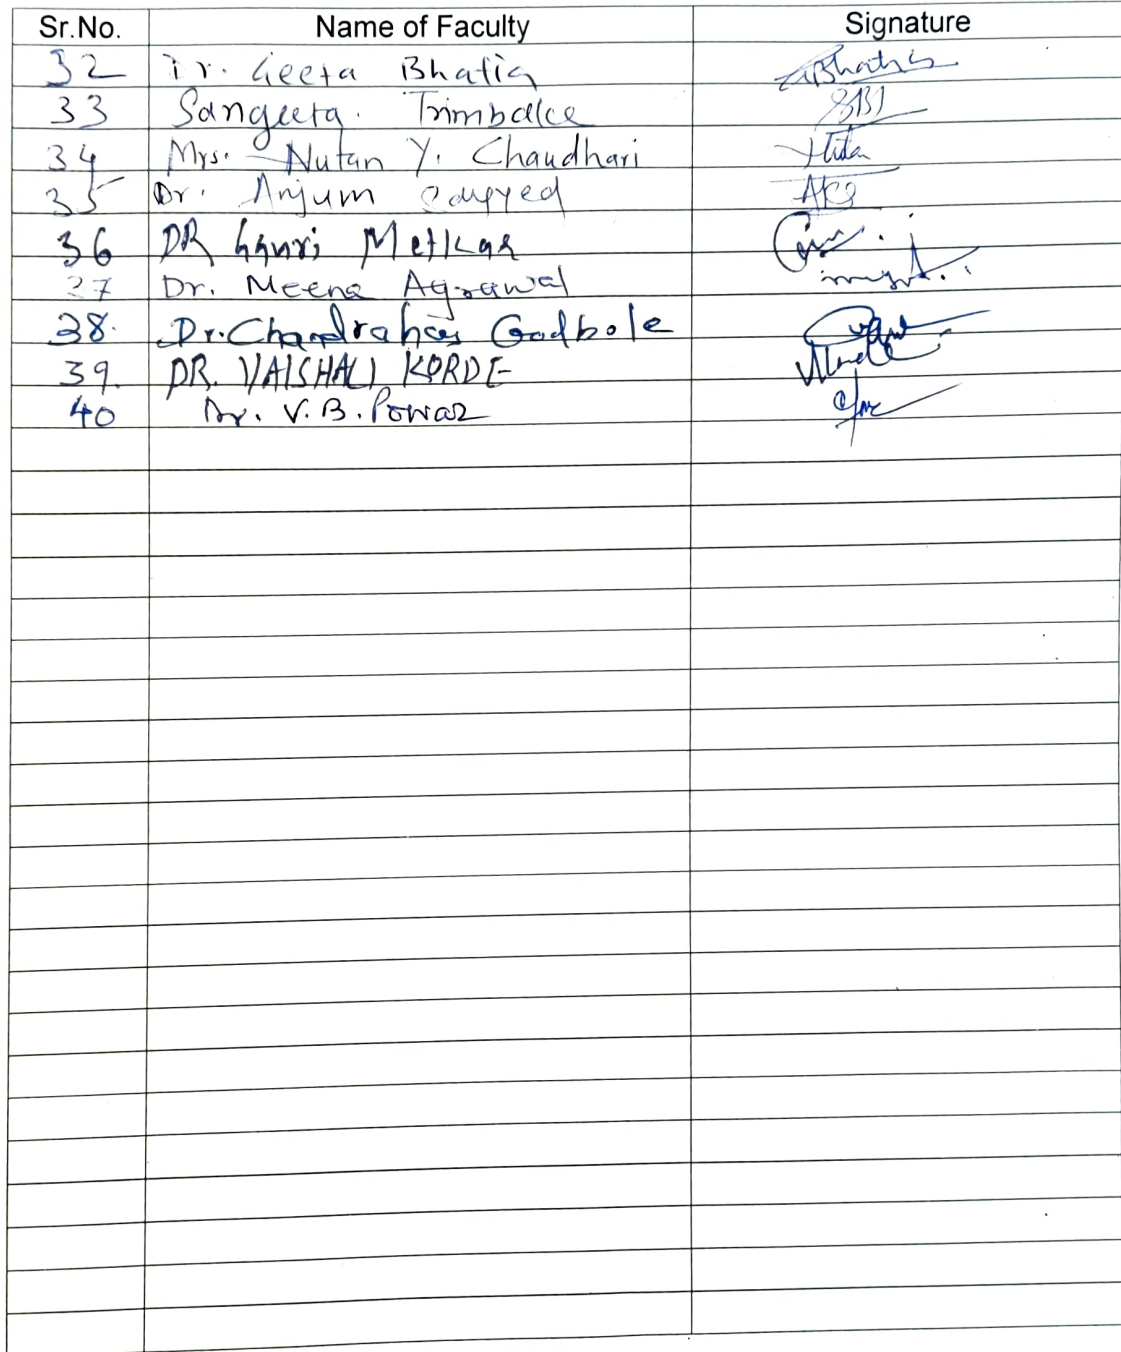 Sr.No. Name of Faculty Signature
32 Dr. Geeta Bhatia GBhatia
33 Sangeeta. Trimbake
34 Mrs. Nutan Y. Chaudhari
35 Dr. Anjum Sayyed
36 DR Gauri Metkar
37 Dr. Meena Agrawal
38. Dr. Chandrahas Godbole
39. DR. VAISHALI KORDE
40 Dr. V.B. Powar